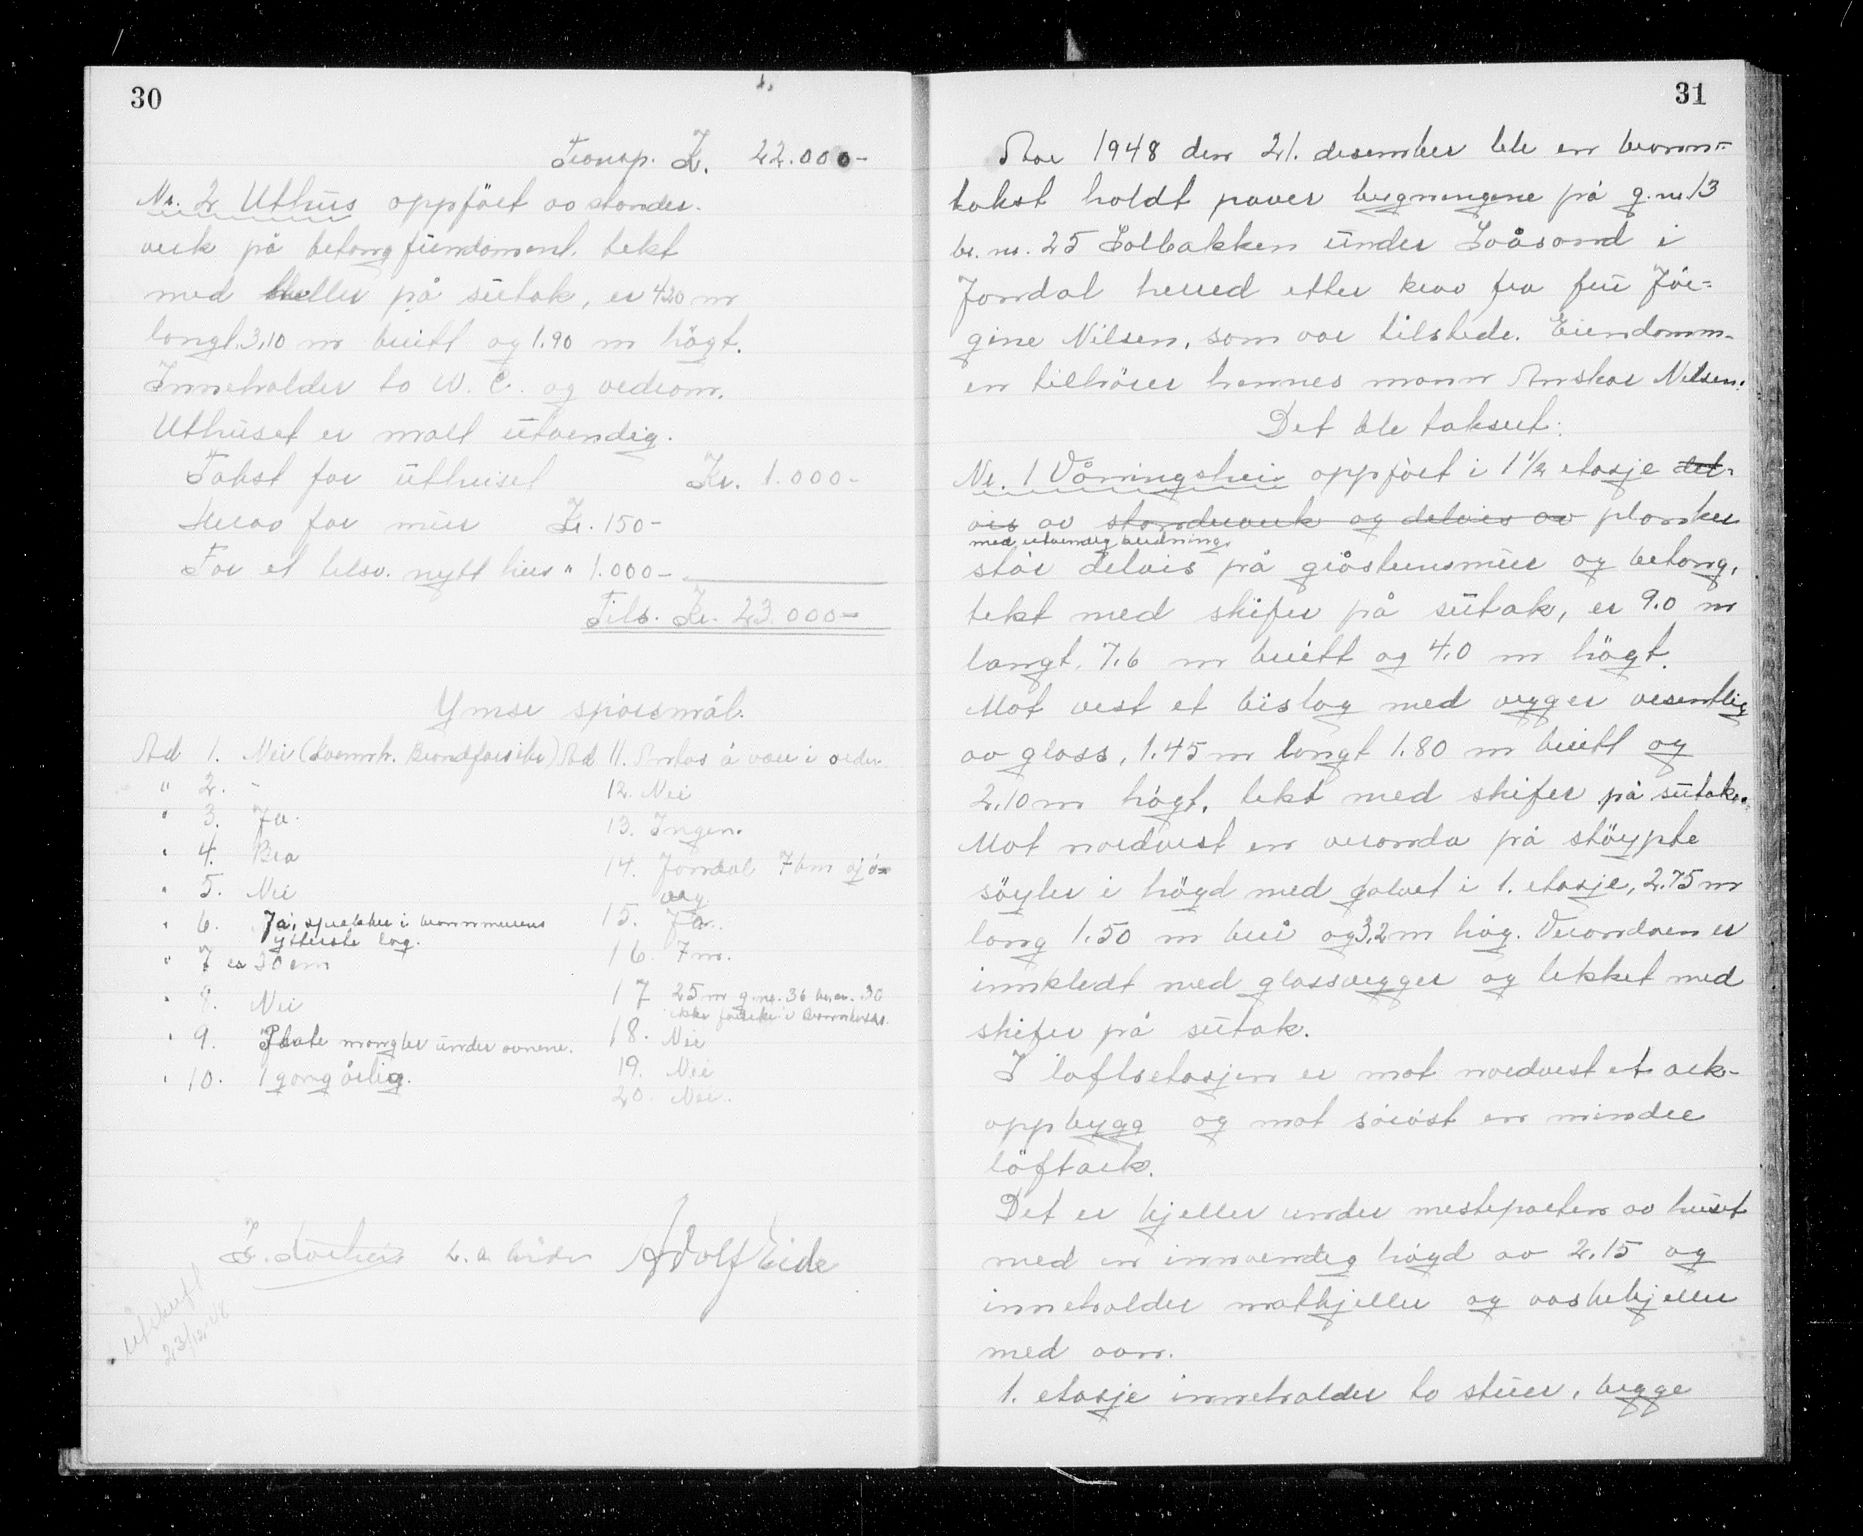 30
Transp. Kr. 22.000-
Nr. 2 Uthus oppført av stender-
verk på betongfundament. tekt
med heller på sutak, er 4.20 m
langt 3,10 m breitt og 1.90 m högt.
Inneholder to W.C. og vedrom.
Uthuset er malt utvendig.
Takst for uthuset Kr. 1.000-
Herav for mur Kr. 150-
For et tilsv. nytt hus " 1.000-
Tils. Kr. 23.000-
Ymse spörsmål.
Ad 1. Nei (Samtr. Brandforsikr.)
" 2. -
" 3. Ja.
" 4. Bra
" 5. Nei
" 6. Ja, sprekker i brannmurens
ytterste lag.
" 7 ca 30 cm
" 8. Nei
" 9. Plate mangler under ovnene.
" 10. 1 gang årlig.
Ad 11. Antas å være i orden.
12. Nei
13. Ingen.
14. Jondal 7 km sjö-
veg
15. Ja.
16. 7 m.
17 25 m g.nr. 36 br.nr. 30
ikke forsikr. i brannkassa.
18. Nei
19. Nei
20. Nei.
Adolf Eide
Utskrift
23/12-48
31
Aar 1948 den 21. desember ble en brann-
takst holdt paver bygningene på g.nr. 13
br. nr. 25 Solbakken under Svåsand i
Jondal herred etter krav fra fru Jör-
gine Nilsen, som var tilstede. Eiendomm-
en tilhörer hennes mann Anskar Nilsen.
Det ble taksert:
Nr. 1 Våningshus oppfört i 1 1/2 etasje del-
vis av stenderverk og delvis av planker
med utvendig bordning.
står delvis på gråsteinsmur og betong,
tekt med skifer på sutak, er 9.0 m
langt. 7,6 m breitt og 4,0 m högt.
Mot vest et bislag med vegger vesentlig
av glass, 1.45 m langt 1.80 m breitt og
2,10 m högt, tekt med skifer på sutak.
Mot nordvest en veranda på støypte
söyler i högd med golvet i 1. etasje, 2.75 m
lang 1.50 m brei og 3,2 m hög. Verandaen er
innkledt med glassvegger og tekket med
skifer på sutak.
I loftsetasjen er mot nordvest et ark-
oppbygg og mot söröst en mindre
löftark.
Det er kjeller under mesteparten av huset
med en innvendig högd av 2.15 og
inneholder matkjeller og vaskekjeller
med ovn.
1. etasje inneholder to stuer, begge